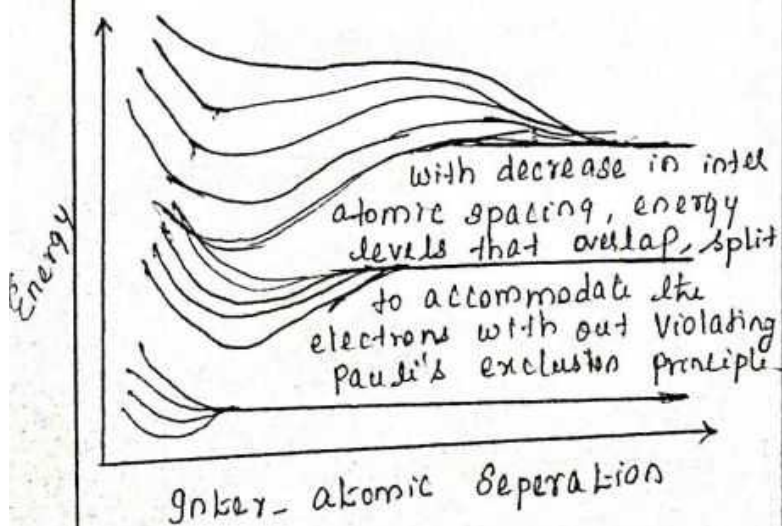 Energy
with decrease in inter
atomic spacing, energy
levels that overlap, split
to accommodate the
electrons with out violating
Pauli's exclusion principle.
Inter-atomic Seperation